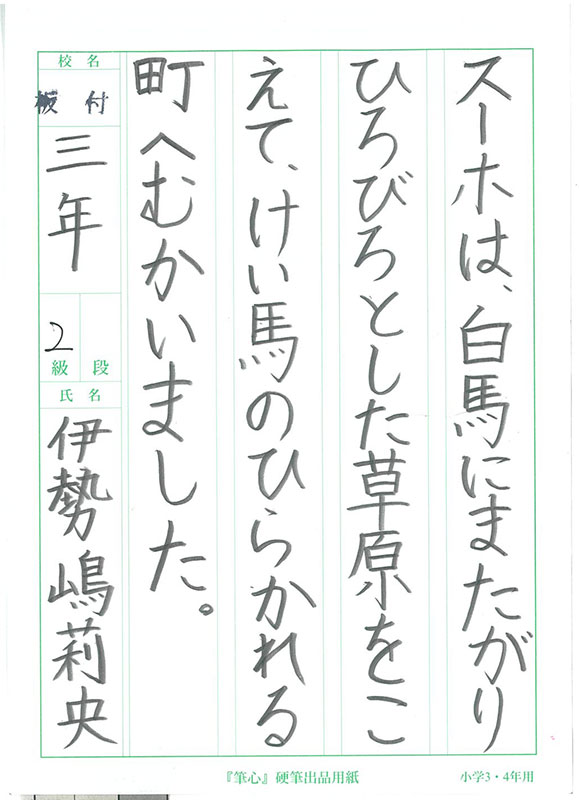 スーホは、白馬にまたがり
ひろびろとした草原をこ
えて、けい馬のひらかれる
町へむかいました。
校名
板付
三年
2
級 段
氏名
伊勢嶋莉央
『筆心』硬筆出品用紙
小学3・4年用